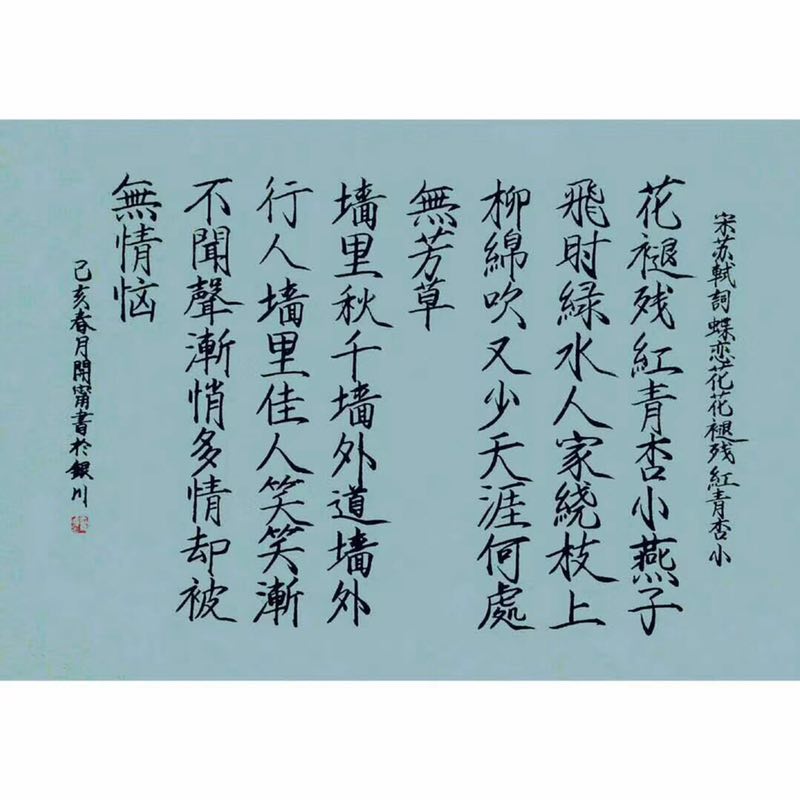 宋苏軾詞蝶恋花花褪残紅青杏小
花褪残紅青杏小燕子
飛时緑水人家繞枝上
柳綿吹又少天涯何處
無芳草
墙里秋千墙外道墙外
行人墙里佳人笑笑漸
不聞聲漸悄多情却被
無情恼
己亥春月開甯書於銀川